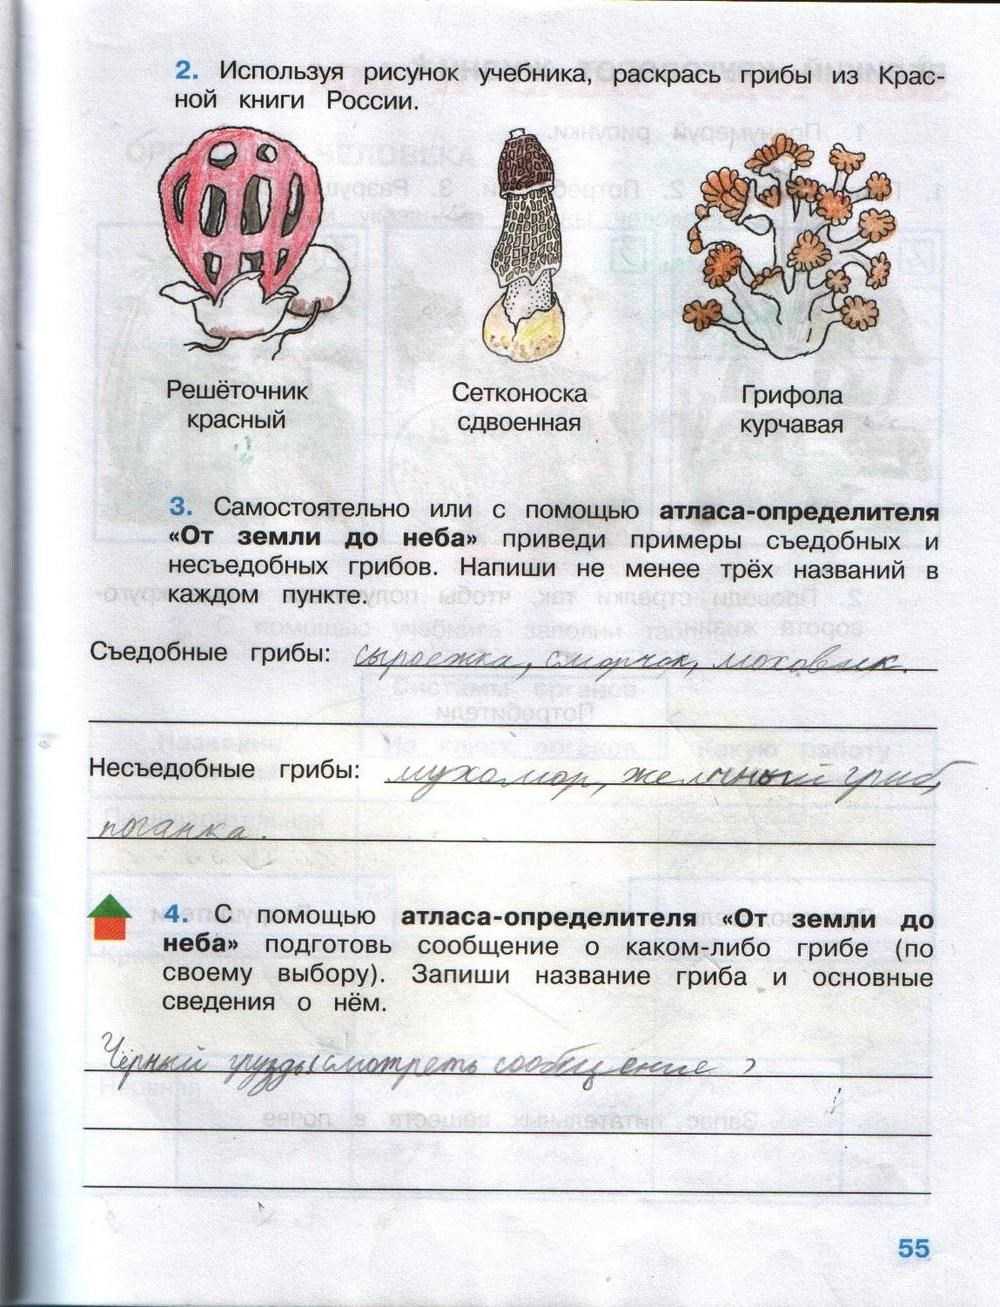 2. Используя рисунок учебника, раскрась грибы из Крас-
ной книги России.
Решёточник
красный
Сетконоска
сдвоенная
Грифола
курчавая
3. Самостоятельно или с помощью атласа-определителя
«От земли до неба» приведи примеры съедобных и
несъедобных грибов. Напиши не менее трёх названий в
каждом пункте.
Съедобные грибы: сыроежка, сморчок, моховик.
Несъедобные грибы: мухомор, желчный гриб,
поганка.
4. С помощью атласа-определителя «От земли до
неба» подготовь сообщение о каком-либо грибе (по
своему выбору). Запиши название гриба и основные
сведения о нём.
Чёрный груздь (смотреть сообщение)
55